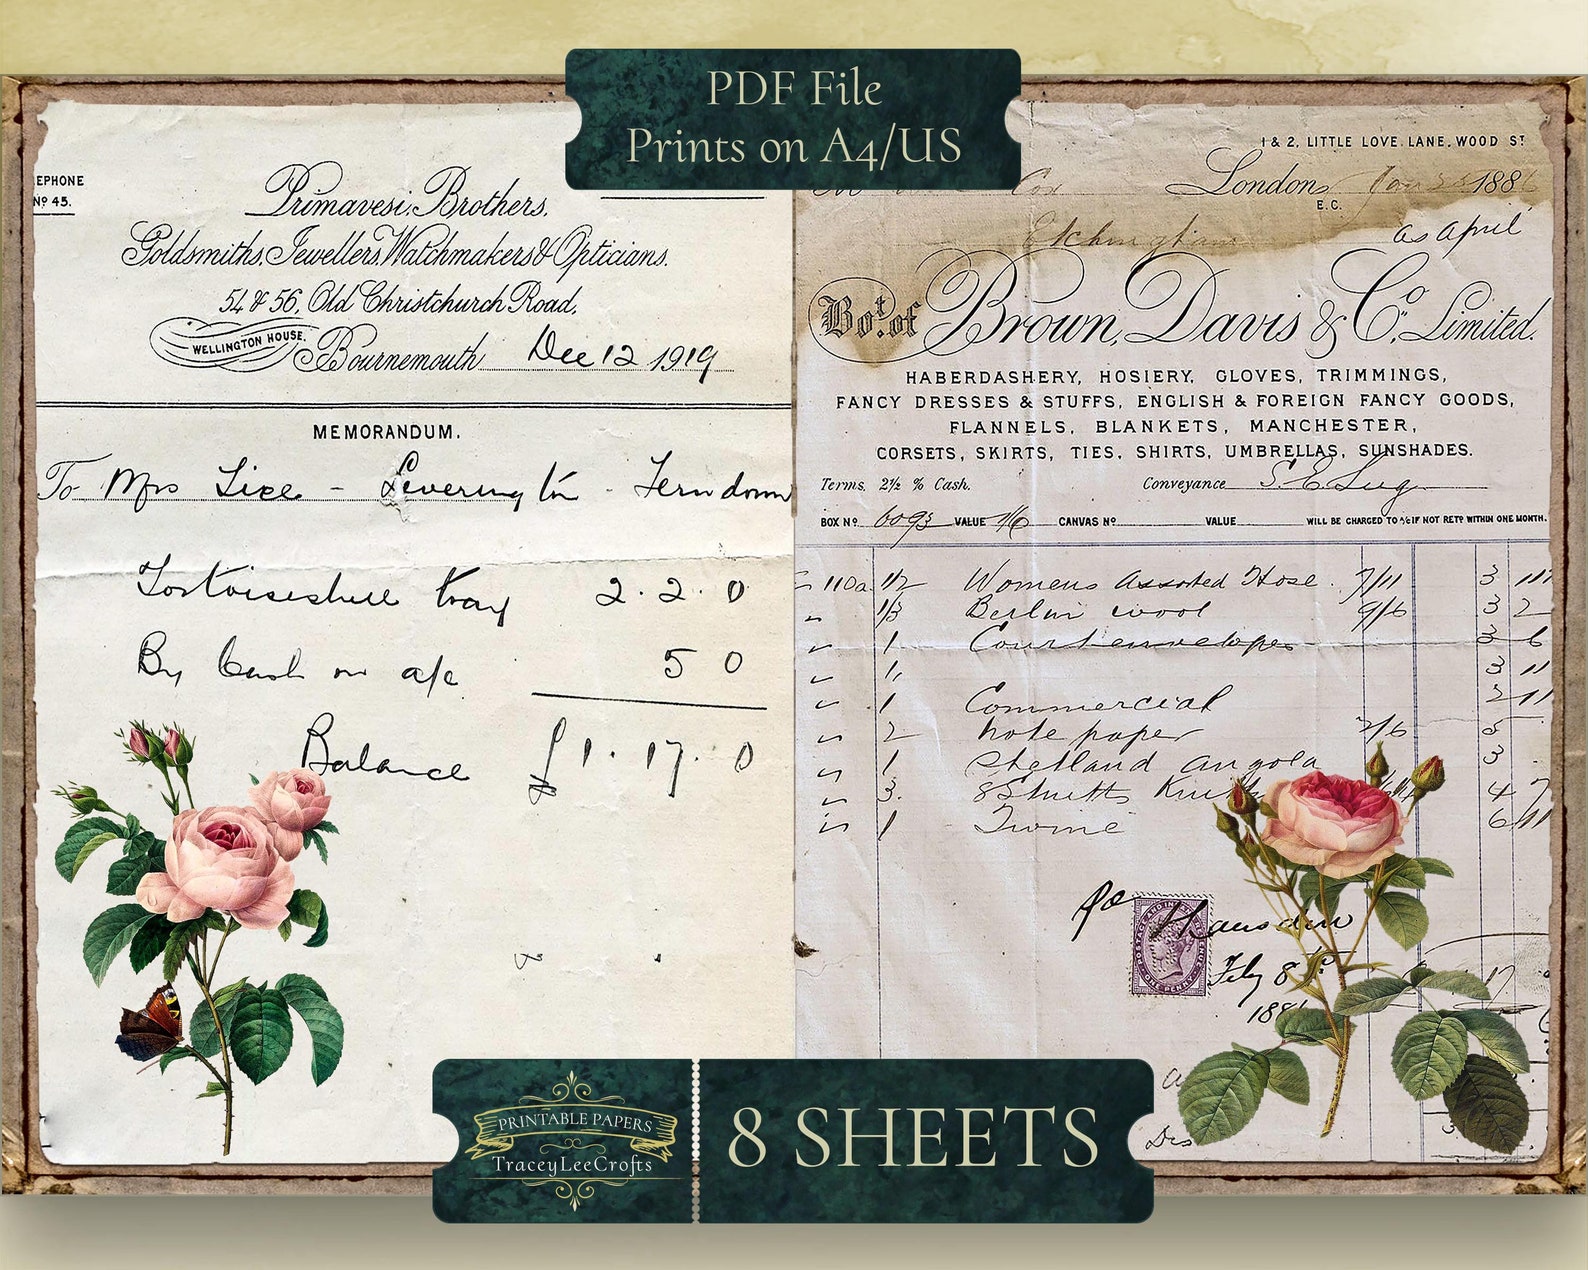 PDF File
Prints on A4/US
EPHONE
Nº 45.
Primavesi, Brothers,
Goldsmiths, Jewellers, Watchmakers & Opticians.
54 & 56, Old Christchurch Road,
WELLINGTON HOUSE,
Bournemouth Dec 12 1919
MEMORANDUM.
To Mrs
Tortoiseshell tray 2. 2. 0
By Cash on a/c 5 0
Balance £1. 17. 0
1 & 2, LITTLE LOVE LANE, WOOD ST
London, Jan 1886
E.C.
as April
Bot. of Brown, Davis & Co., Limited.
HABERDASHERY, HOSIERY, GLOVES, TRIMMINGS,
FANCY DRESSES & STUFFS, ENGLISH & FOREIGN FANCY GOODS,
FLANNELS, BLANKETS, MANCHESTER,
CORSETS, SKIRTS, TIES, SHIRTS, UMBRELLAS, SUNSHADES.
Terms, 2½ % Cash. Conveyance
BOX Nº 6093 VALUE 1/6 CANVAS Nº VALUE WILL BE CHARGED TO A/C IF NOT RETD WITHIN ONE MONTH.
110a 1/2 Womens Assorted Hose 7/11 3
1/3 Berlin wool 9/6 3 2
1 Court envelopes 3 6
1, 3 11
1 Commercial 2 11
2 note paper 2/6 5
1 Shetland angola 3
3. 4 7
1 Twine 6 11
POSTAGE AND INLAND REVENUE
ONE PENNY
Feby 8th
1886
PRINTABLE PAPERS
TraceyLeeCrofts
8 SHEETS